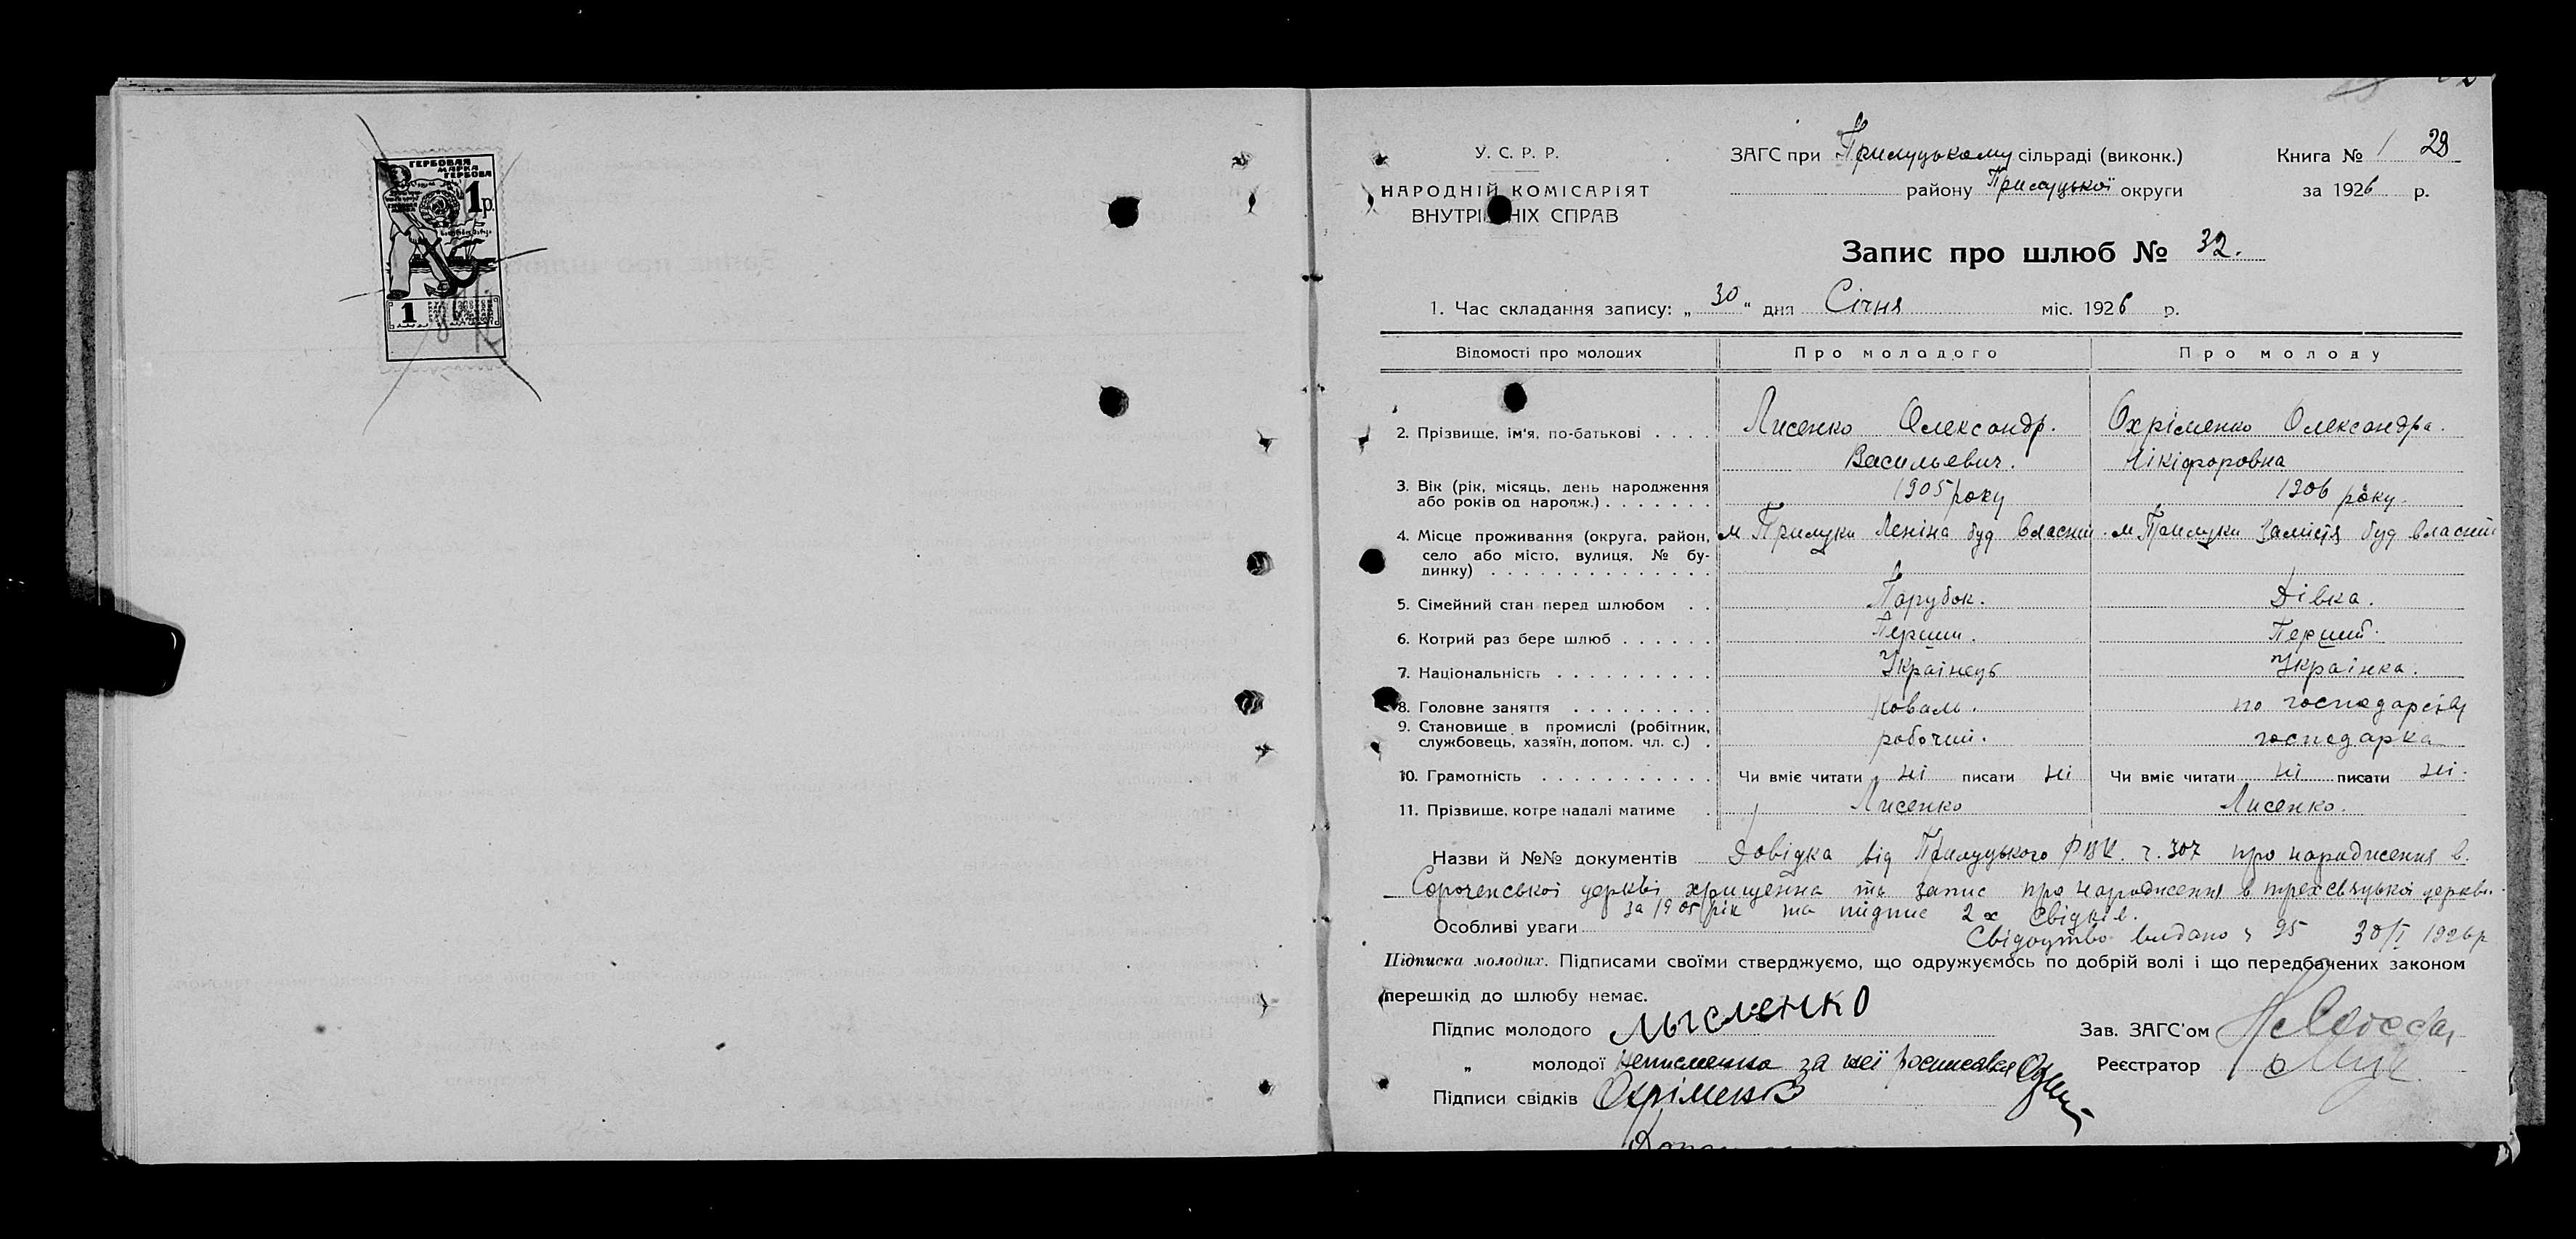 ГЕРБОВАЯ
МАРКА
ГЕРБОВА
1 р.
1
У. С. Р. Р.
НАРОДНІЙ КОМІСАРІЯТ
ВНУТРІШНІХ СПРАВ
ЗАГС при Прилуцькому сільраді (виконк.)
району Прилуцької округи
Книга № 1 29
за 1926 р.
Запис про шлюб № 32.
1. Час складання запису: „ 30 “ дня Січня міс. 1926 р.
Відомості про молодих Про молодого Про молоду
2. Прізвище, ім'я, по-батькові . . . . Лисенко Олександр. Охріменко Олександра.
Васильевич. Нікіфоровна
3. Вік (рік, місяць, день народження або років од народж.) . . . . . . . 1905 року 1906 року.
4. Місце проживання (округа, район, село або місто, вулиця, № будинку) . . . м Прилуки Леніна буд власний. м Прилуки Замістя буд власний
5. Сімейний стан перед шлюбом . . Парубок. Дівка.
6. Котрий раз бере шлюб . . . . . . Перший. Перший.
7. Національність . . . . . . . . . . Українець Українка.
8. Головне заняття . . . . . . . . . Коваль. по господарству
9. Становище в промислі (робітник, службовець, хазяїн, допом. чл. с.) . робочий. господарка
10. Грамотність . . . . . . . . . . . Чи вміє читати ні писати ні Чи вміє читати ні писати ні.
11. Прізвище, котре надалі матиме . Лисенко Лисенко.
Назви й №№ документів Довідка від Прилуцького РВК. ч. 307 про народження в.
Сороченської церкві хрищенна та запис про народження в трехсвяцької церкви.
за 1905 рік та підпис 2 х свідків.
Особливі уваги Свідоцтво видано ч 25 30/I 1926 р
Підписка молодих. Підписами своїми стверджуємо, що одружуємось по добрій волі і що передбачених законом
перешкід до шлюбу немає.
Підпис молодого Лысменко Зав. ЗАГС'ом
„ молодої Неписменна за неї росписався Реєстратор
Підписи свідків Охріменко